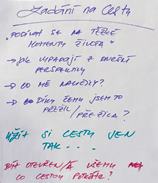 Zadání na cestu
• Podívat se na těžké
momenty života
→ jak vypadají z dnešní
perspektivy
→ co mě naučily?
→ díky čemu jsem to
přežil / přežila?
Užít si cestu jen
tak...
Být otevřen/á všemu
co cestou potkáš?